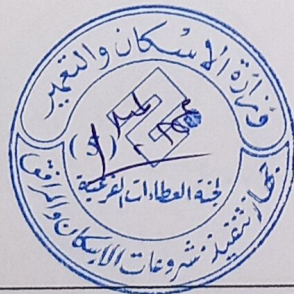 وزارة الإسكان والتعمير
لجنة العطاءات الفرعية
جهاز تنفيذ مشروعات الإسكان والمرافق